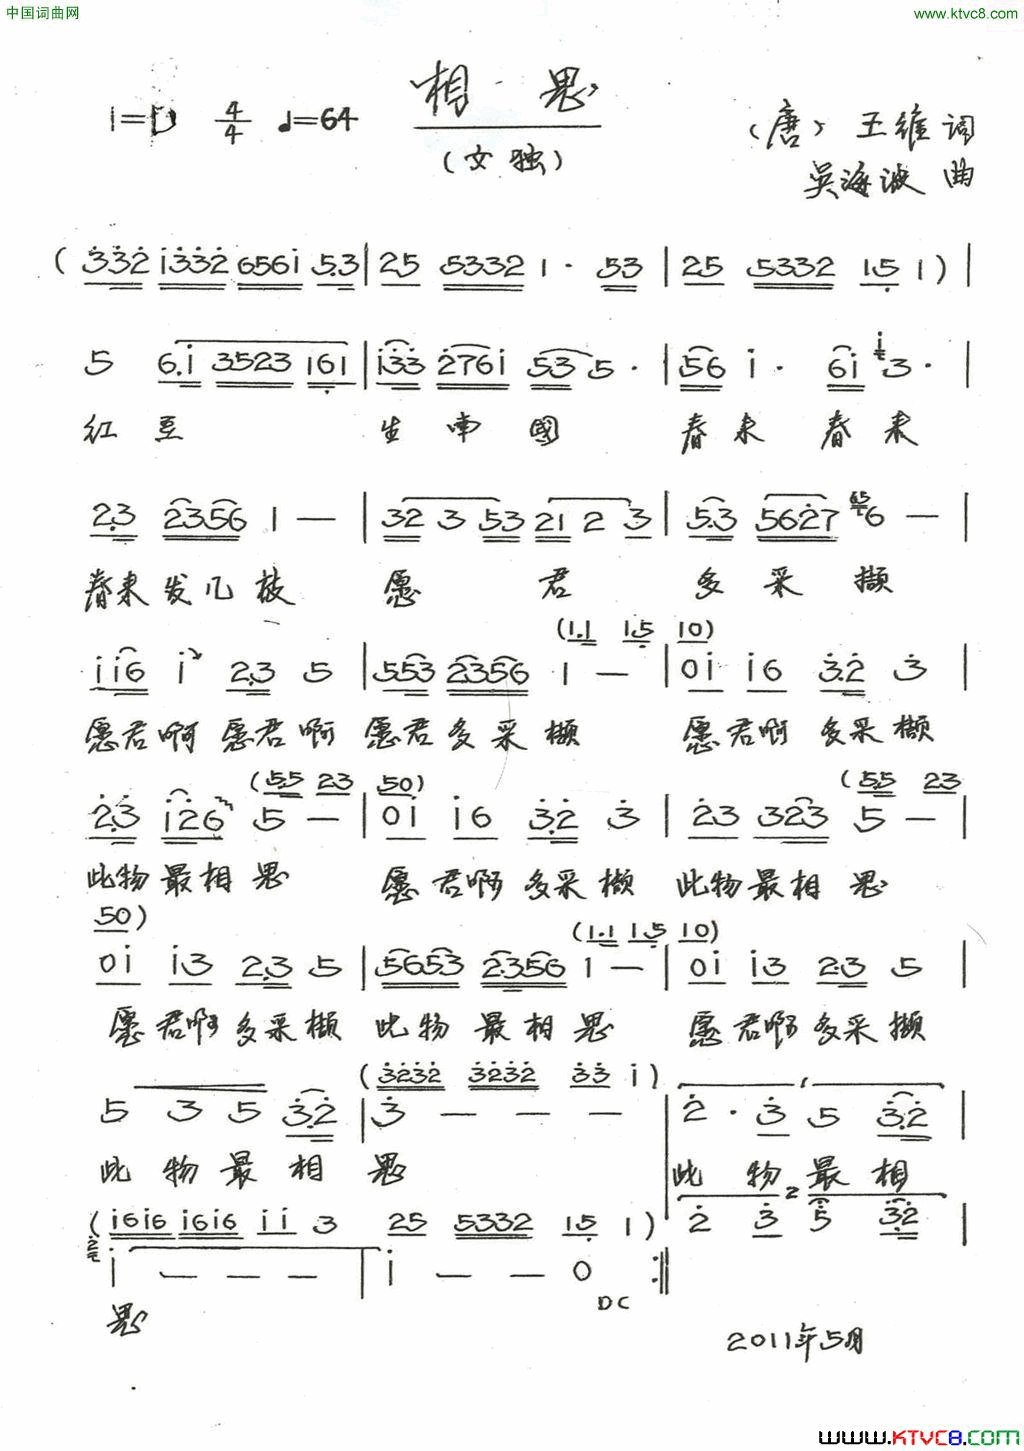 中国词曲网 www.ktvc8.com
相 思
1=D 4/4 ♩=64
(女独)
(唐) 王维 词
吴海波 曲
(3̇3̇2̇ 1̇3̇3̇2̇ 6561̇ 5.3 | 25 5332 1· 53 | 25 5332 15̣ 1) |
5 6.1̇ 3523 16̣1 | 1̇3̇3̇ 2̇761̇ 53 5· | 56 1̇· 61̇ 3̇· |
红豆 生南國 春来 春来
2.3 2356 1 — | 32 3 53 21 2 3 | 5.3 562̇7 6 — |
春来发几枝 愿 君 多采 撷
(1.1 15̣ 10)
1̇1̇6 1̇ 2.3 5 | 553 2356 1 — | 01̇ 1̇6 3̇.2̇ 3̇ |
愿君啊 愿君啊 愿君多采撷 愿君啊 多采撷
(5.5 23 50) (5.5 23
2̇.3̇ 1̇2̇6 5 — | 01̇ 1̇6 3̇.2̇ 3̇ | 2̇3 323 5 — |
此物最相思 愿君啊多采撷 此物最相思
50) (1.1 15̣ 10)
01̇ 1̇3 2.3 5 | 5653 2.356 1 — | 01̇ 1̇3 2.3 5 |
愿君啊多采撷 此物最相思 愿君啊多采撷
(3̇2̇3̇2̇ 3̇2̇3̇2̇ 3̇3̇ 1̇)
5 3 5 3̇.2̇ | 3̇ — — — | 2̇· 3̇ 5 3̇.2̇ |
此物最相 思 此 物最相
(1̇61̇6 1̇61̇6 1̇1̇ 3 25 5332 15̣ 1) 2̇ 3̇ 5̇ 3̇2̇ |
1̇ — — — | 1̇ — — 0 :‖
DC
思
2011年5月
www.KTVC8.com